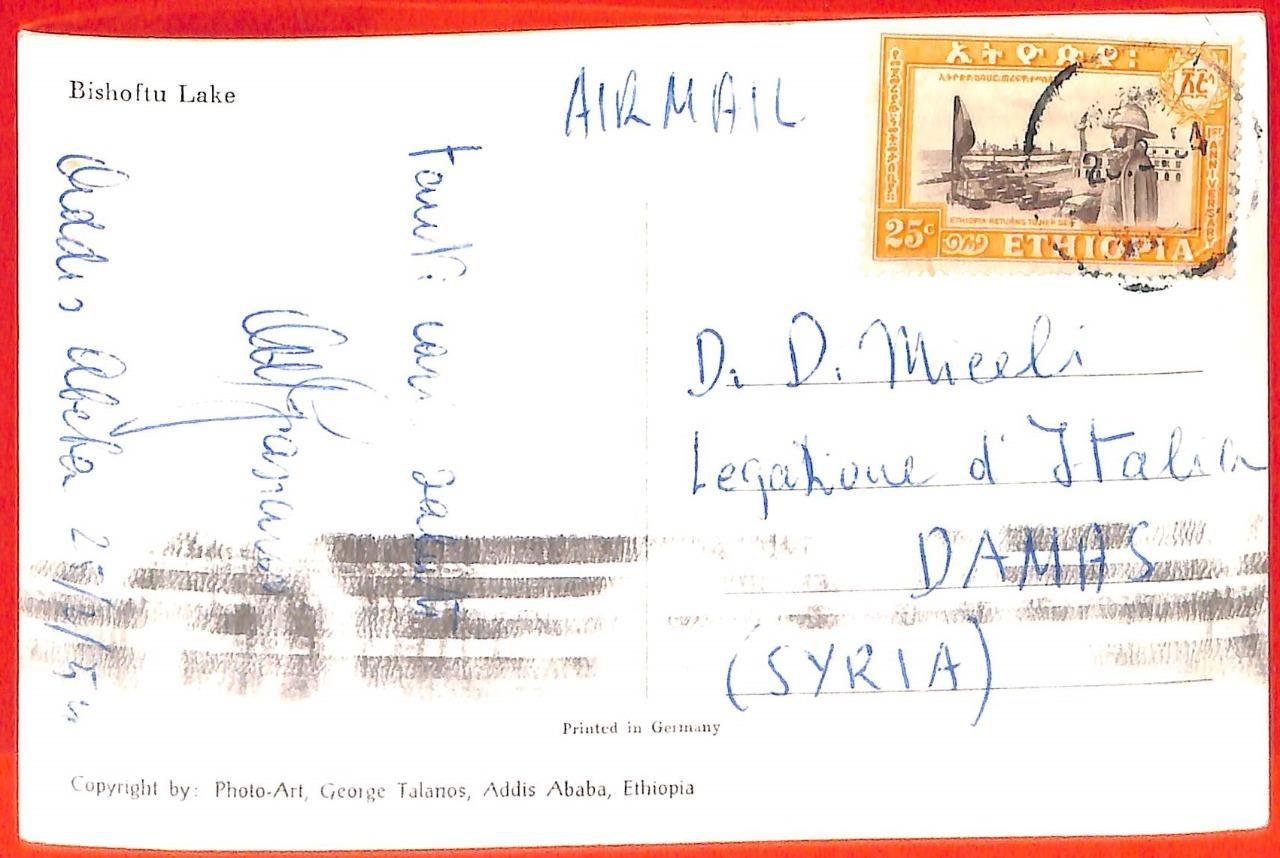 Bishoftu Lake
AIRMAIL
ኢትዮጵያ፡
1ST ANNIVERSARY
ETHIOPIA RETURNS TO HER SEA
25c ETHIOPIA
Addis Abeba
Tanti cari saluti
D. D. Miceli
Legazione d'Italia
DAMAS
(SYRIA)
Printed in Germany
Copyright by: Photo-Art, George Talanos, Addis Ababa, Ethiopia